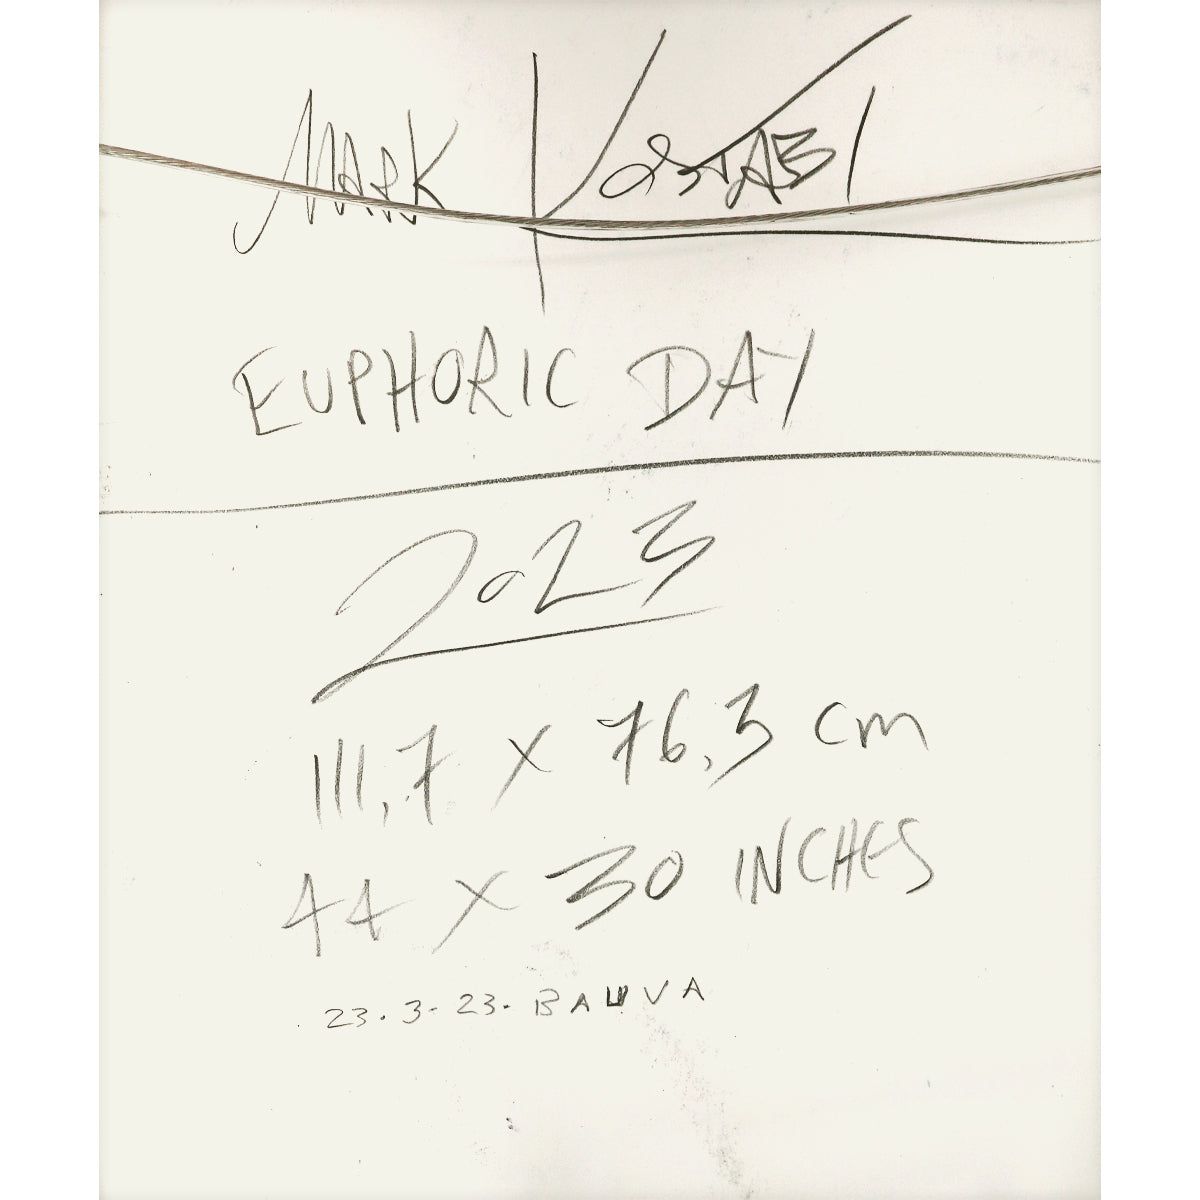 MARK KOSTABI
EUPHORIC DAY
2023
111,7 X 76,3 cm
44 X 30 INCHES
23.3-23. BAUVA